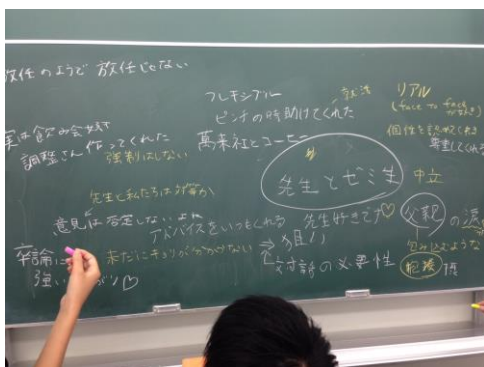 放任のようで 放任じゃない
フレキシブル
ピンチの時助けてくれた
就活
リアル
(face to face
個性を認めてくれる
尊重してくれる
実は飲み会好き
調整さん作ってくれた
強制はしない
萬来社とコーヒー
先生とゼミ生
中立
先生と私たちは対等か
意見は否定しないよね
アドバイスをいつもくれる
先生好きです♡
父親の
包み込むような
卒論に
強い
未だにキョリが分かせない
⇒狙い
対話の必要性